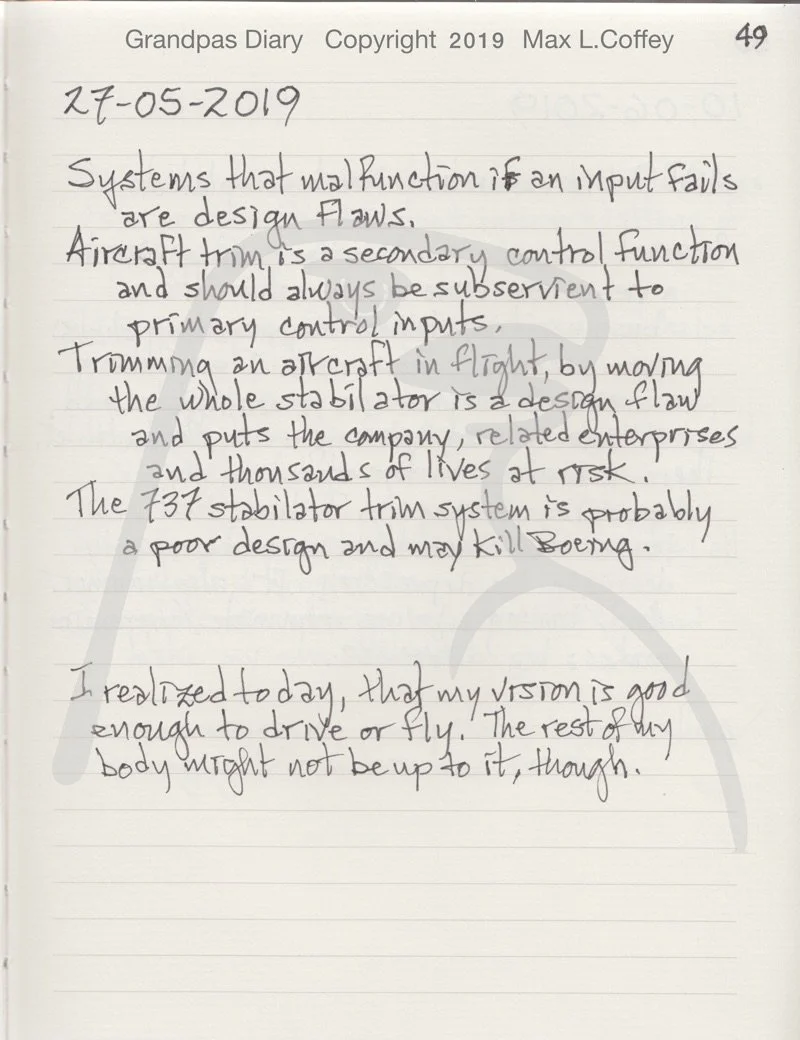 Grandpas Diary Copyright 2019 Max L.Coffey 49
27-05-2019
Systems that malfunction if an input fails
are design flaws.
Aircraft trim is a secondary control function
and should always be subservient to
primary control inputs.
Trimming an aircraft in flight, by moving
the whole stabilator is a design flaw
and puts the company, related enterprises
and thousands of lives at risk.
The 737 stabilator trim system is probably
a poor design and may kill Boeing.
I realized today, that my vision is good
enough to drive or fly. The rest of my
body might not be up to it, though.